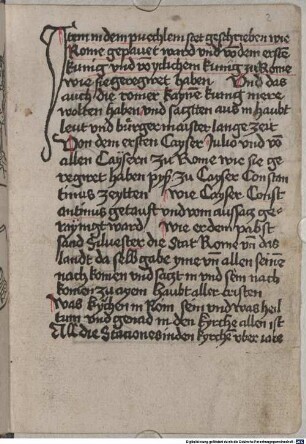 Item in dem puechlein stet geschrieben wie
Rome gepauet ward und vo dem ersten
kunig und voytlichem kunig zu Rome
wie sie geregiret haben Und das
auch die romer kayne kunig mere
wolten haben und saczten auch haubt
leut und burgermaister lange zeit
Von dem ersten Cayser Julio und vo
allen Caÿseren zu Rome wie sie ge
regnret haben pyß zu Cayser Constan
tinus zeytten wie Cayser Const
antinus getauft und vom aussacz ge
rayniget ward wie er dem pabst
sand Siluester die Stat Rome vn das
landt da selb gabe yme vn allen seine
nach komen und saczt in und sein nach
komen zu aÿem haubt aller cristen
Was kÿrchen in Rom sein und was heil
tum und genad in den kyrche allen ist
All die Staciones in den kyrche vber iars